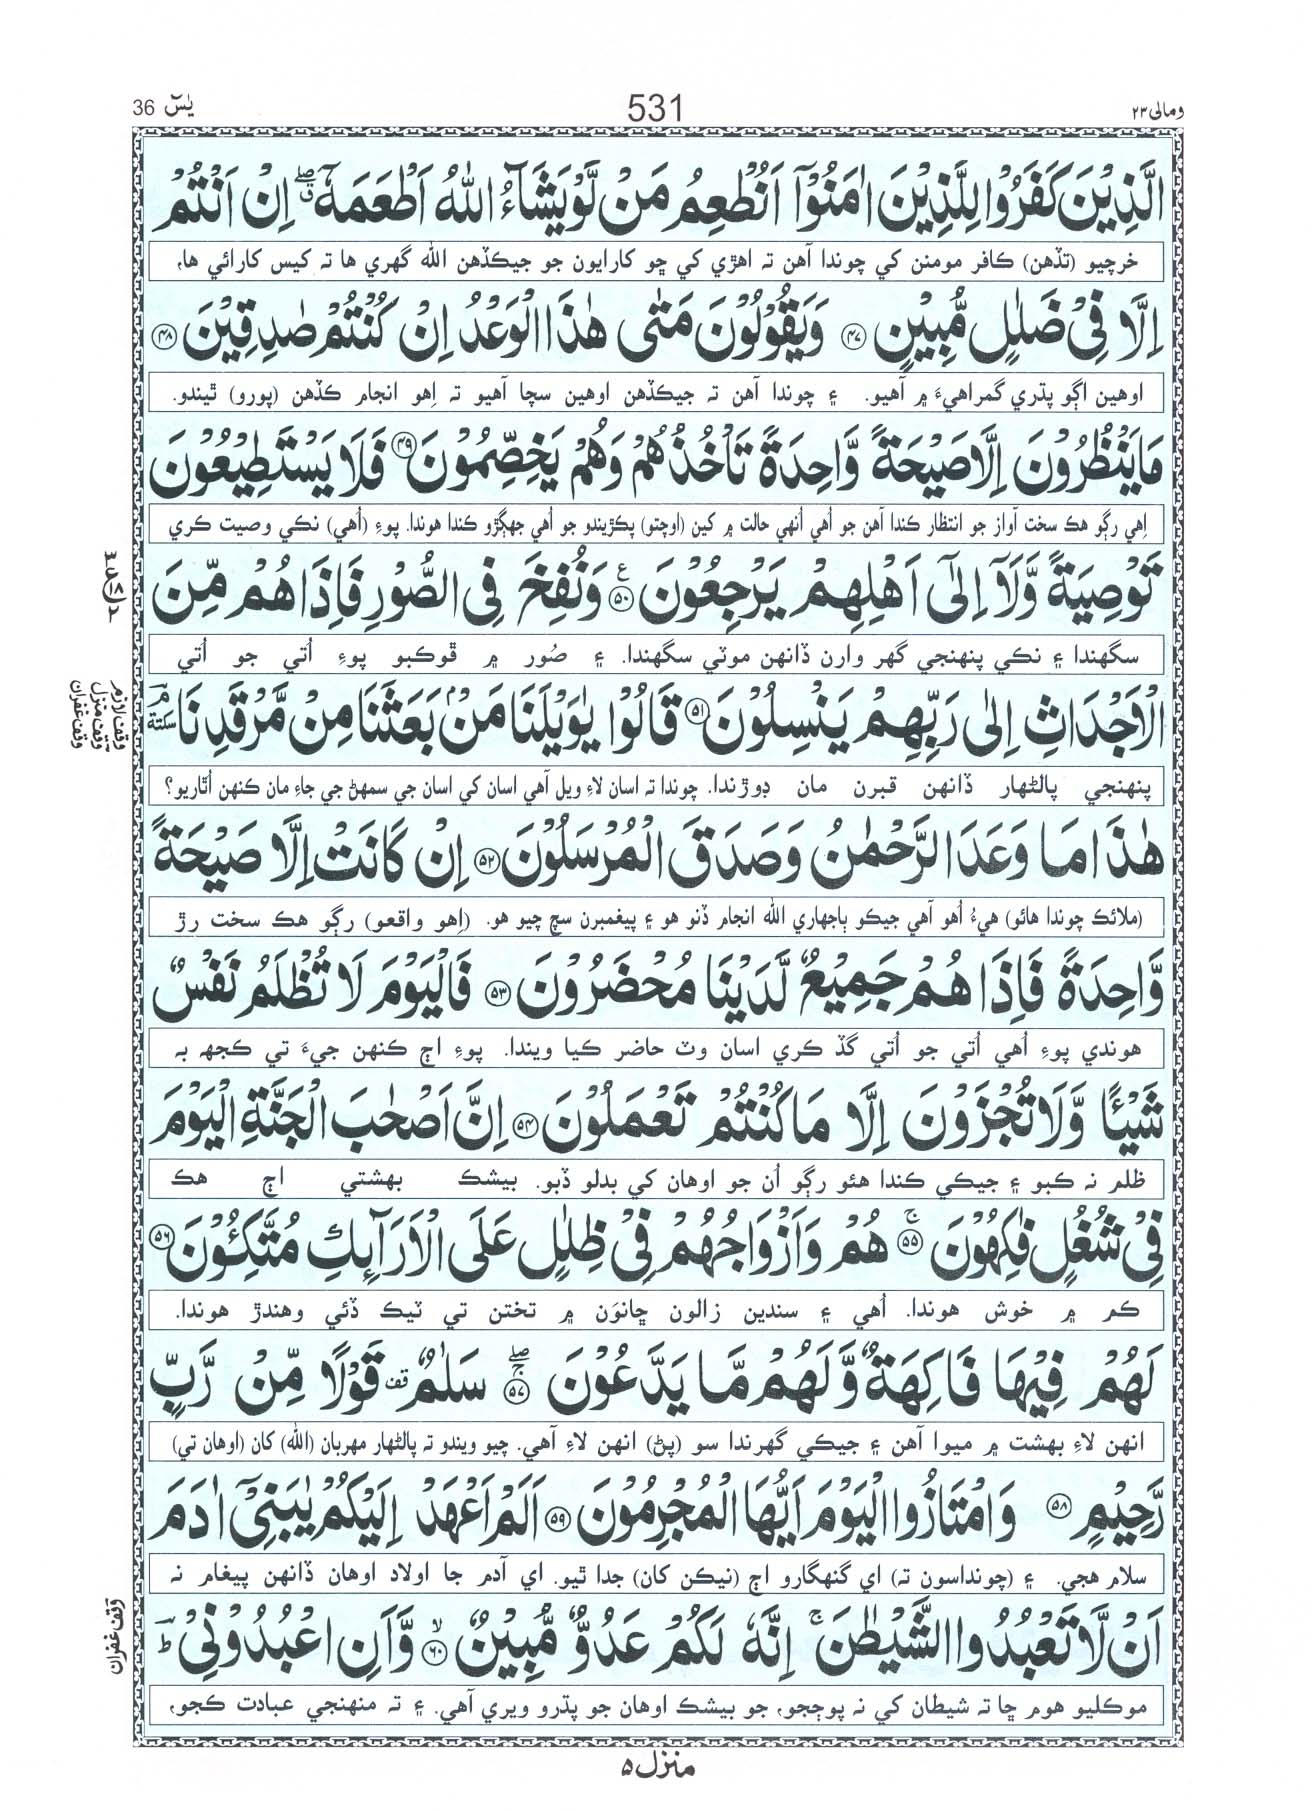 يٰسٓ 36
531
ومالى ٢٣
الَّذِيْنَ كَفَرُوْا لِلَّذِيْنَ اٰمَنُوْٓا اَنُطْعِمُ مَنْ لَّوْ يَشَآءُ اللّٰهُ اَطْعَمَهٗٓ ۖ اِنْ اَنْتُمْ
خرچيو (تڏهن) ڪافر مومنن کي چوندا آهن ته اهڙي کي ڇو کارايون جو جيڪڏهن الله گهري ها ته کيس کارائي ها،
اِلَّا فِيْ ضَلٰلٍ مُّبِيْنٍ ﴿٤٧﴾ وَيَقُوْلُوْنَ مَتٰى هٰذَا الْوَعْدُ اِنْ كُنْتُمْ صٰدِقِيْنَ ﴿٤٨﴾
اوهين اڳو پڌري گمراهيءَ ۾ آهيو. ۽ چوندا آهن ته جيڪڏهن اوهين سچا آهيو ته اِهو انجام ڪڏهن (پورو) ٿيندو.
مَا يَنْظُرُوْنَ اِلَّا صَيْحَةً وَّاحِدَةً تَاْخُذُهُمْ وَهُمْ يَخِصِّمُوْنَ ﴿٤٩﴾ فَلَا يَسْتَطِيْعُوْنَ
اِهي رڳو هڪ سخت آواز جو انتظار ڪندا آهن جو اُهي اُنهي حالت ۾ کين (اوچتو) پڪڙيندو جو اُهي جهڳڙو ڪندا هوندا. پوءِ (اُهي) نڪي وصيت ڪري
تَوْصِيَةً وَّلَآ اِلٰٓى اَهْلِهِمْ يَرْجِعُوْنَ ﴿٥٠﴾ ع وَنُفِخَ فِى الصُّوْرِ فَاِذَا هُمْ مِّنَ
سگهندا ۽ نڪي پنهنجي گهر وارن ڏانهن موٽي سگهندا. ۽ صُور ۾ ڦوڪبو پوءِ اُتي جو اُتي
وقف لازم
وقف منزل
وقف غفران
الْاَجْدَاثِ اِلٰى رَبِّهِمْ يَنْسِلُوْنَ ﴿٥١﴾ قَالُوْا يٰوَيْلَنَا مَنْۢ بَعَثَنَا مِنْ مَّرْقَدِنَا ۘ سكتة
پنهنجي پالڻهار ڏانهن قبرن مان ڊوڙندا. چوندا ته اسان لاءِ ويل آهي اسان کي اسان جي سمهڻ جي جاءِ مان ڪنهن اُٿاريو؟
هٰذَا مَا وَعَدَ الرَّحْمٰنُ وَصَدَقَ الْمُرْسَلُوْنَ ﴿٥٢﴾ اِنْ كَانَتْ اِلَّا صَيْحَةً
(ملائڪ چوندا هائو) هيءُ اُهو آهي جيڪو ٻاجهاري الله انجام ڏنو هو ۽ پيغمبرن سچ چيو هو. (اِهو واقعو) رڳو هڪ سخت رڙ
وَّاحِدَةً فَاِذَا هُمْ جَمِيْعٌ لَّدَيْنَا مُحْضَرُوْنَ ﴿٥٣﴾ فَالْيَوْمَ لَا تُظْلَمُ نَفْسٌ
هوندي پوءِ اُهي اُتي جو اُتي گڏ ڪري اسان وٽ حاضر ڪيا ويندا. پوءِ اڄ ڪنهن جيءَ تي ڪجهہ به
شَيْـًٔا وَّلَا تُجْزَوْنَ اِلَّا مَا كُنْتُمْ تَعْمَلُوْنَ ﴿٥٤﴾ اِنَّ اَصْحٰبَ الْجَنَّةِ الْيَوْمَ
ظلم نہ ڪبو ۽ جيڪي ڪندا هئو رڳو اُن جو اوهان کي بدلو ڏبو. بيشڪ بهشتي اڄ هڪ
فِيْ شُغُلٍ فٰكِهُوْنَ ﴿٥٥﴾ۚ هُمْ وَاَزْوَاجُهُمْ فِيْ ظِلٰلٍ عَلَى الْاَرَآئِكِ مُتَّكِـُٔوْنَ ﴿٥٦﴾
ڪم ۾ خوش هوندا. اُهي ۽ سندين زالون ڇانوَن ۾ تختن تي ٽيڪ ڏئي وهندڙ هوندا.
لَهُمْ فِيْهَا فَاكِهَةٌ وَّلَهُمْ مَّا يَدَّعُوْنَ ﴿٥٧﴾ۖۚ سَلٰمٌ قف قَوْلًا مِّنْ رَّبٍّ
انهن لاءِ بهشت ۾ ميوا آهن ۽ جيڪي گهرندا سو (پڻ) انهن لاءِ آهي. چيو ويندو ته پالڻهار مهربان (الله) کان (اوهان تي)
رَّحِيْمٍ ﴿٥٨﴾ وَامْتَازُوا الْيَوْمَ اَيُّهَا الْمُجْرِمُوْنَ ﴿٥٩﴾ اَلَمْ اَعْهَدْ اِلَيْكُمْ يٰبَنِيْٓ اٰدَمَ
سلام هجي. ۽ (چونداسون ته) اي گنهگارو اڄ (نيڪن کان) جدا ٿيو. اي آدم جا اولاد اوهان ڏانهن پيغام نه
وقف غفران
اَنْ لَّا تَعْبُدُوا الشَّيْطٰنَ ۚ اِنَّهٗ لَكُمْ عَدُوٌّ مُّبِيْنٌ ﴿٦٠﴾ۙ وَّاَنِ اعْبُدُوْنِيْ ؕ
موڪليو هوم ڇا ته شيطان کي نه پوڄجو، جو بيشڪ اوهان جو پڌرو ويري آهي. ۽ ته منهنجي عبادت ڪجو،
منزل ٥